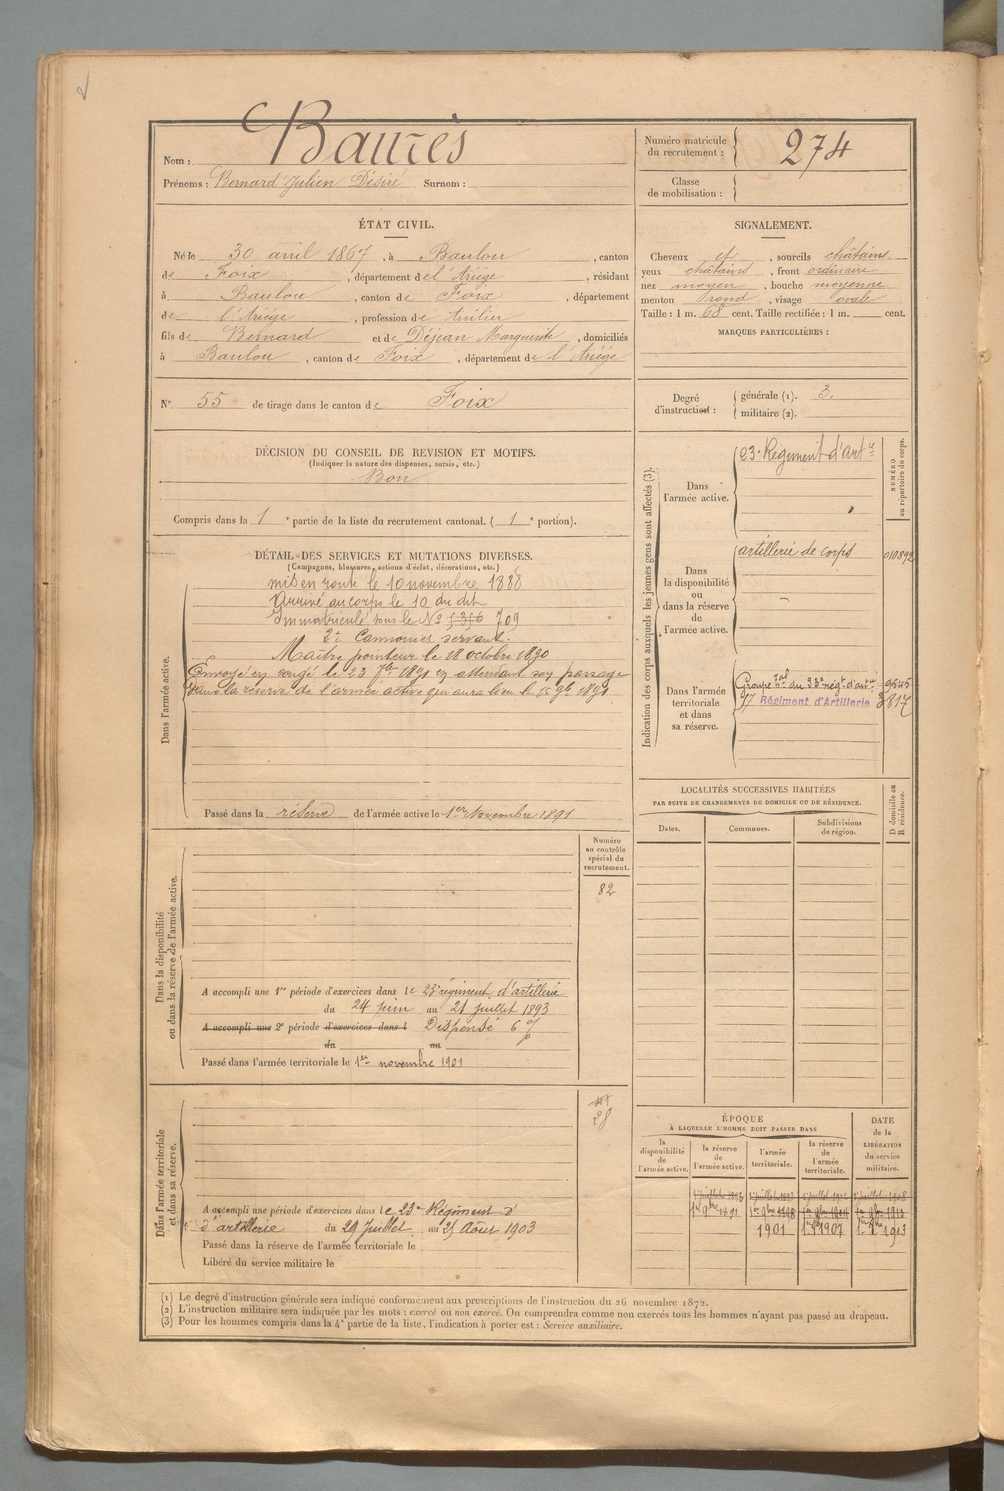 Nom : Baurès
Prénoms : Bernard Julien Désiré Surnom :
Numéro matricule du recrutement : 274
Classe de mobilisation :
ÉTAT CIVIL.
Né le 30 avril 1867, à Baulou, canton
de Foix, département de l'Ariège, résidant
à Baulou, canton de Foix, département
de l'Ariège, profession de
fils de Bernard et de Déjean Marguerite, domiciliés
à Baulou, canton de Foix, département de l'Ariège
N° 55 de tirage dans le canton de Foix
SIGNALEMENT.
Cheveux et, sourcils châtains
yeux châtains, front ordinaire
nez moyen, bouche moyenne
menton rond, visage ovale
Taille : 1 m. 68 cent. Taille rectifiée : 1 m. cent.
MARQUES PARTICULIÈRES :
Degré d'instruction :
générale (1). 3.
militaire (2).
DÉCISION DU CONSEIL DE REVISION ET MOTIFS.
(Indiquer la nature des dispenses, sursis, etc.)
Bon
Compris dans la 1e partie de la liste du recrutement cantonal. (1e portion).
DÉTAIL DES SERVICES ET MUTATIONS DIVERSES.
(Campagnes, blessures, actions d'éclat, décorations, etc.)
Dans l'armée active.
mis en route le 10 novembre 1888
Arrivé au corps le 10 du dit
Immatriculé sous le N° 709
2e Canonnier servant.
Maître pointeur le 18 octobre 1890
Envoyé en congé le 23 7bre 1891 en attendant son passage
dans la réserve de l'armée active qui aura lieu le 1er 9bre 1891
Passé dans la réserve de l'armée active le 1er Novembre 1891
Indication des corps auxquels les jeunes gens sont affectés (3).
NUMÉRO au répertoire du corps.
Dans l'armée active.
23e Régiment d'artie
Dans la disponibilité ou dans la réserve de l'armée active.
artillerie de corps 010892
Dans l'armée territoriale et dans sa réserve.
Groupe tal du 23e régt d'artie 9545
17 Régiment d'Artillerie 3817
LOCALITÉS SUCCESSIVES HABITÉES
PAR SUITE DE CHANGEMENTS DE DOMICILE OU DE RÉSIDENCE.
Dates.
Communes.
Subdivisions de région.
D domicile ou R résidence.
Numéro au contrôle spécial du recrutement.
82
Dans la disponibilité ou dans la réserve de l'armée active.
A accompli une 1re période d'exercices dans le 23e régiment d'artillerie
du 24 juin au 21 juillet 1893
A accompli une 2e période d'exercices dans l Dispensé
du au
Passé dans l'armée territoriale le 1er novembre 1901
28
Dans l'armée territoriale et dans sa réserve.
A accompli une période d'exercices dans le 23e Régiment d'
d'artillerie du 29 Juillet au Août 1903
Passé dans la réserve de l'armée territoriale le
Libéré du service militaire le
ÉPOQUE
À LAQUELLE L'HOMME DOIT PASSER DANS
la disponibilité de l'armée active.
la réserve de l'armée active.
l'armée territoriale.
la réserve de l'armée territoriale.
DATE de la LIBÉRATION du service militaire.
1er 9bre 1891
1901
1907
1913
(1) Le degré d'instruction générale sera indiqué conformément aux prescriptions de l'instruction du 26 novembre 1872.
(2) L'instruction militaire sera indiquée par les mots : exercé ou non exercé. On comprendra comme non exercés tous les hommes n'ayant pas passé au drapeau.
(3) Pour les hommes compris dans la 4e partie de la liste, l'indication à porter est : Service auxiliaire.